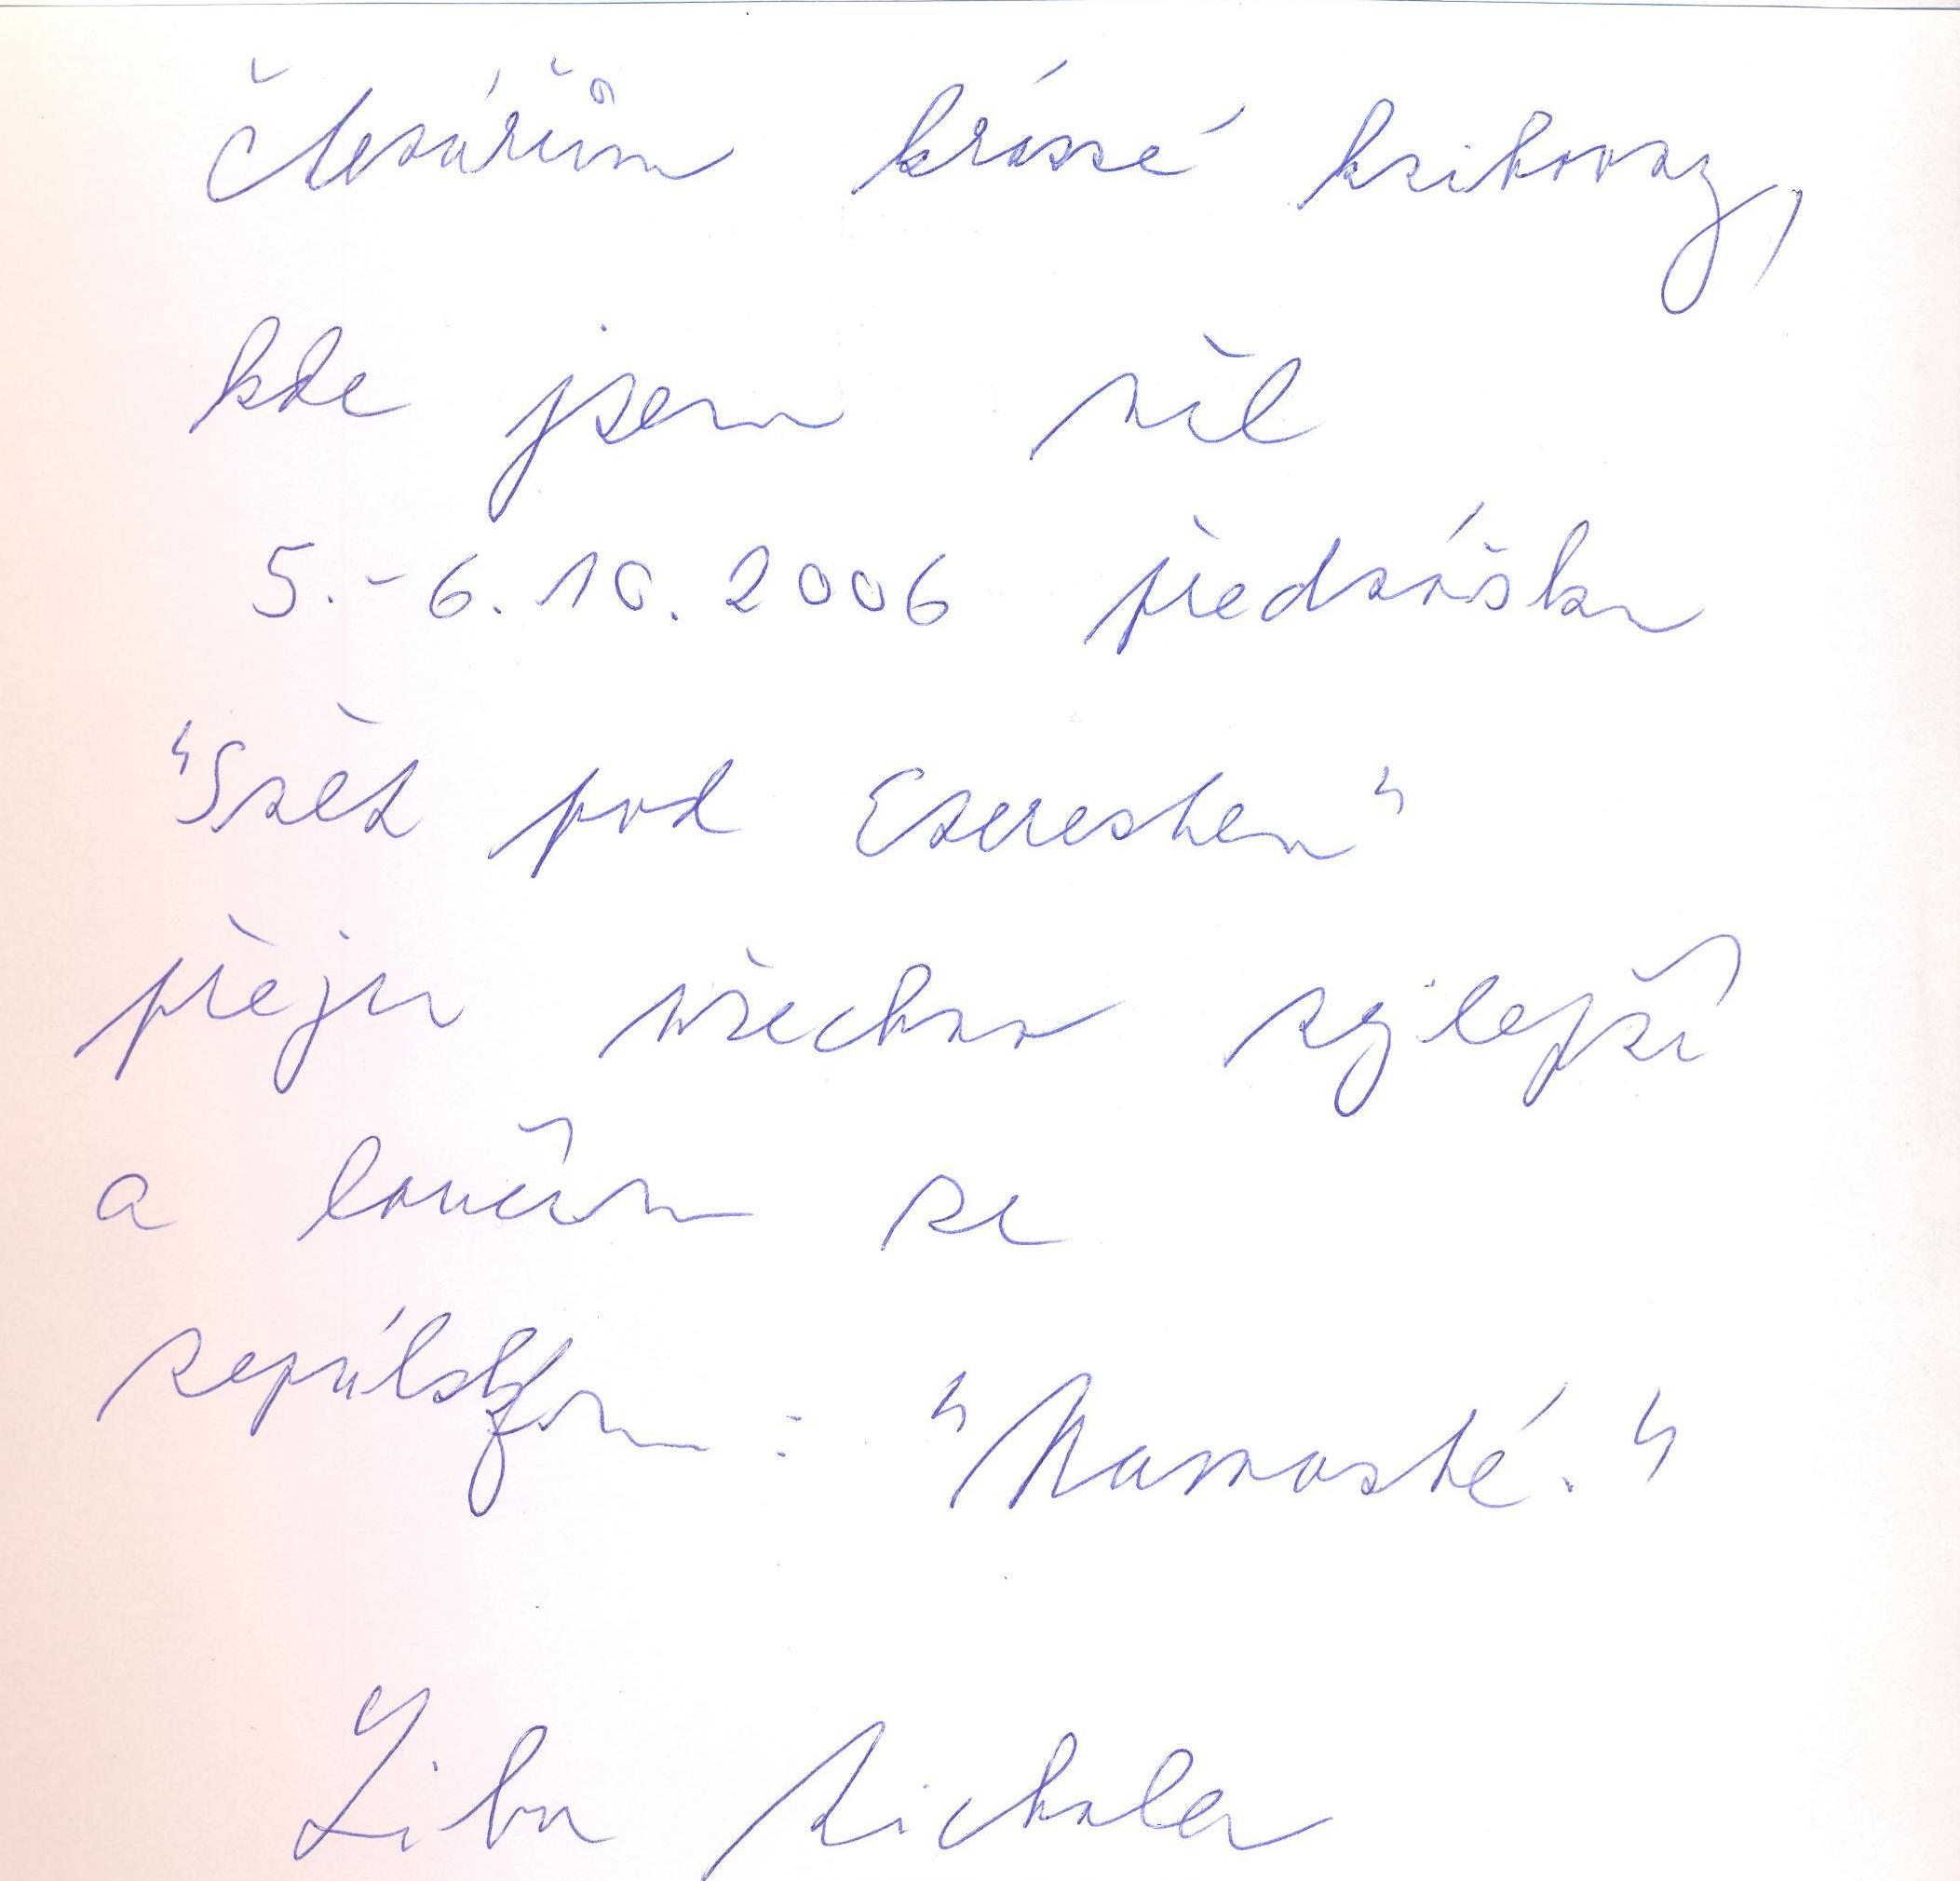 Čtenářům krásné knihovny,
kde jsem měl
5.-6.10.2006 přednášku
"Svět pod Everestem"
přeju všechno nejlepší
a loučím se
nepálským: "Namasté."